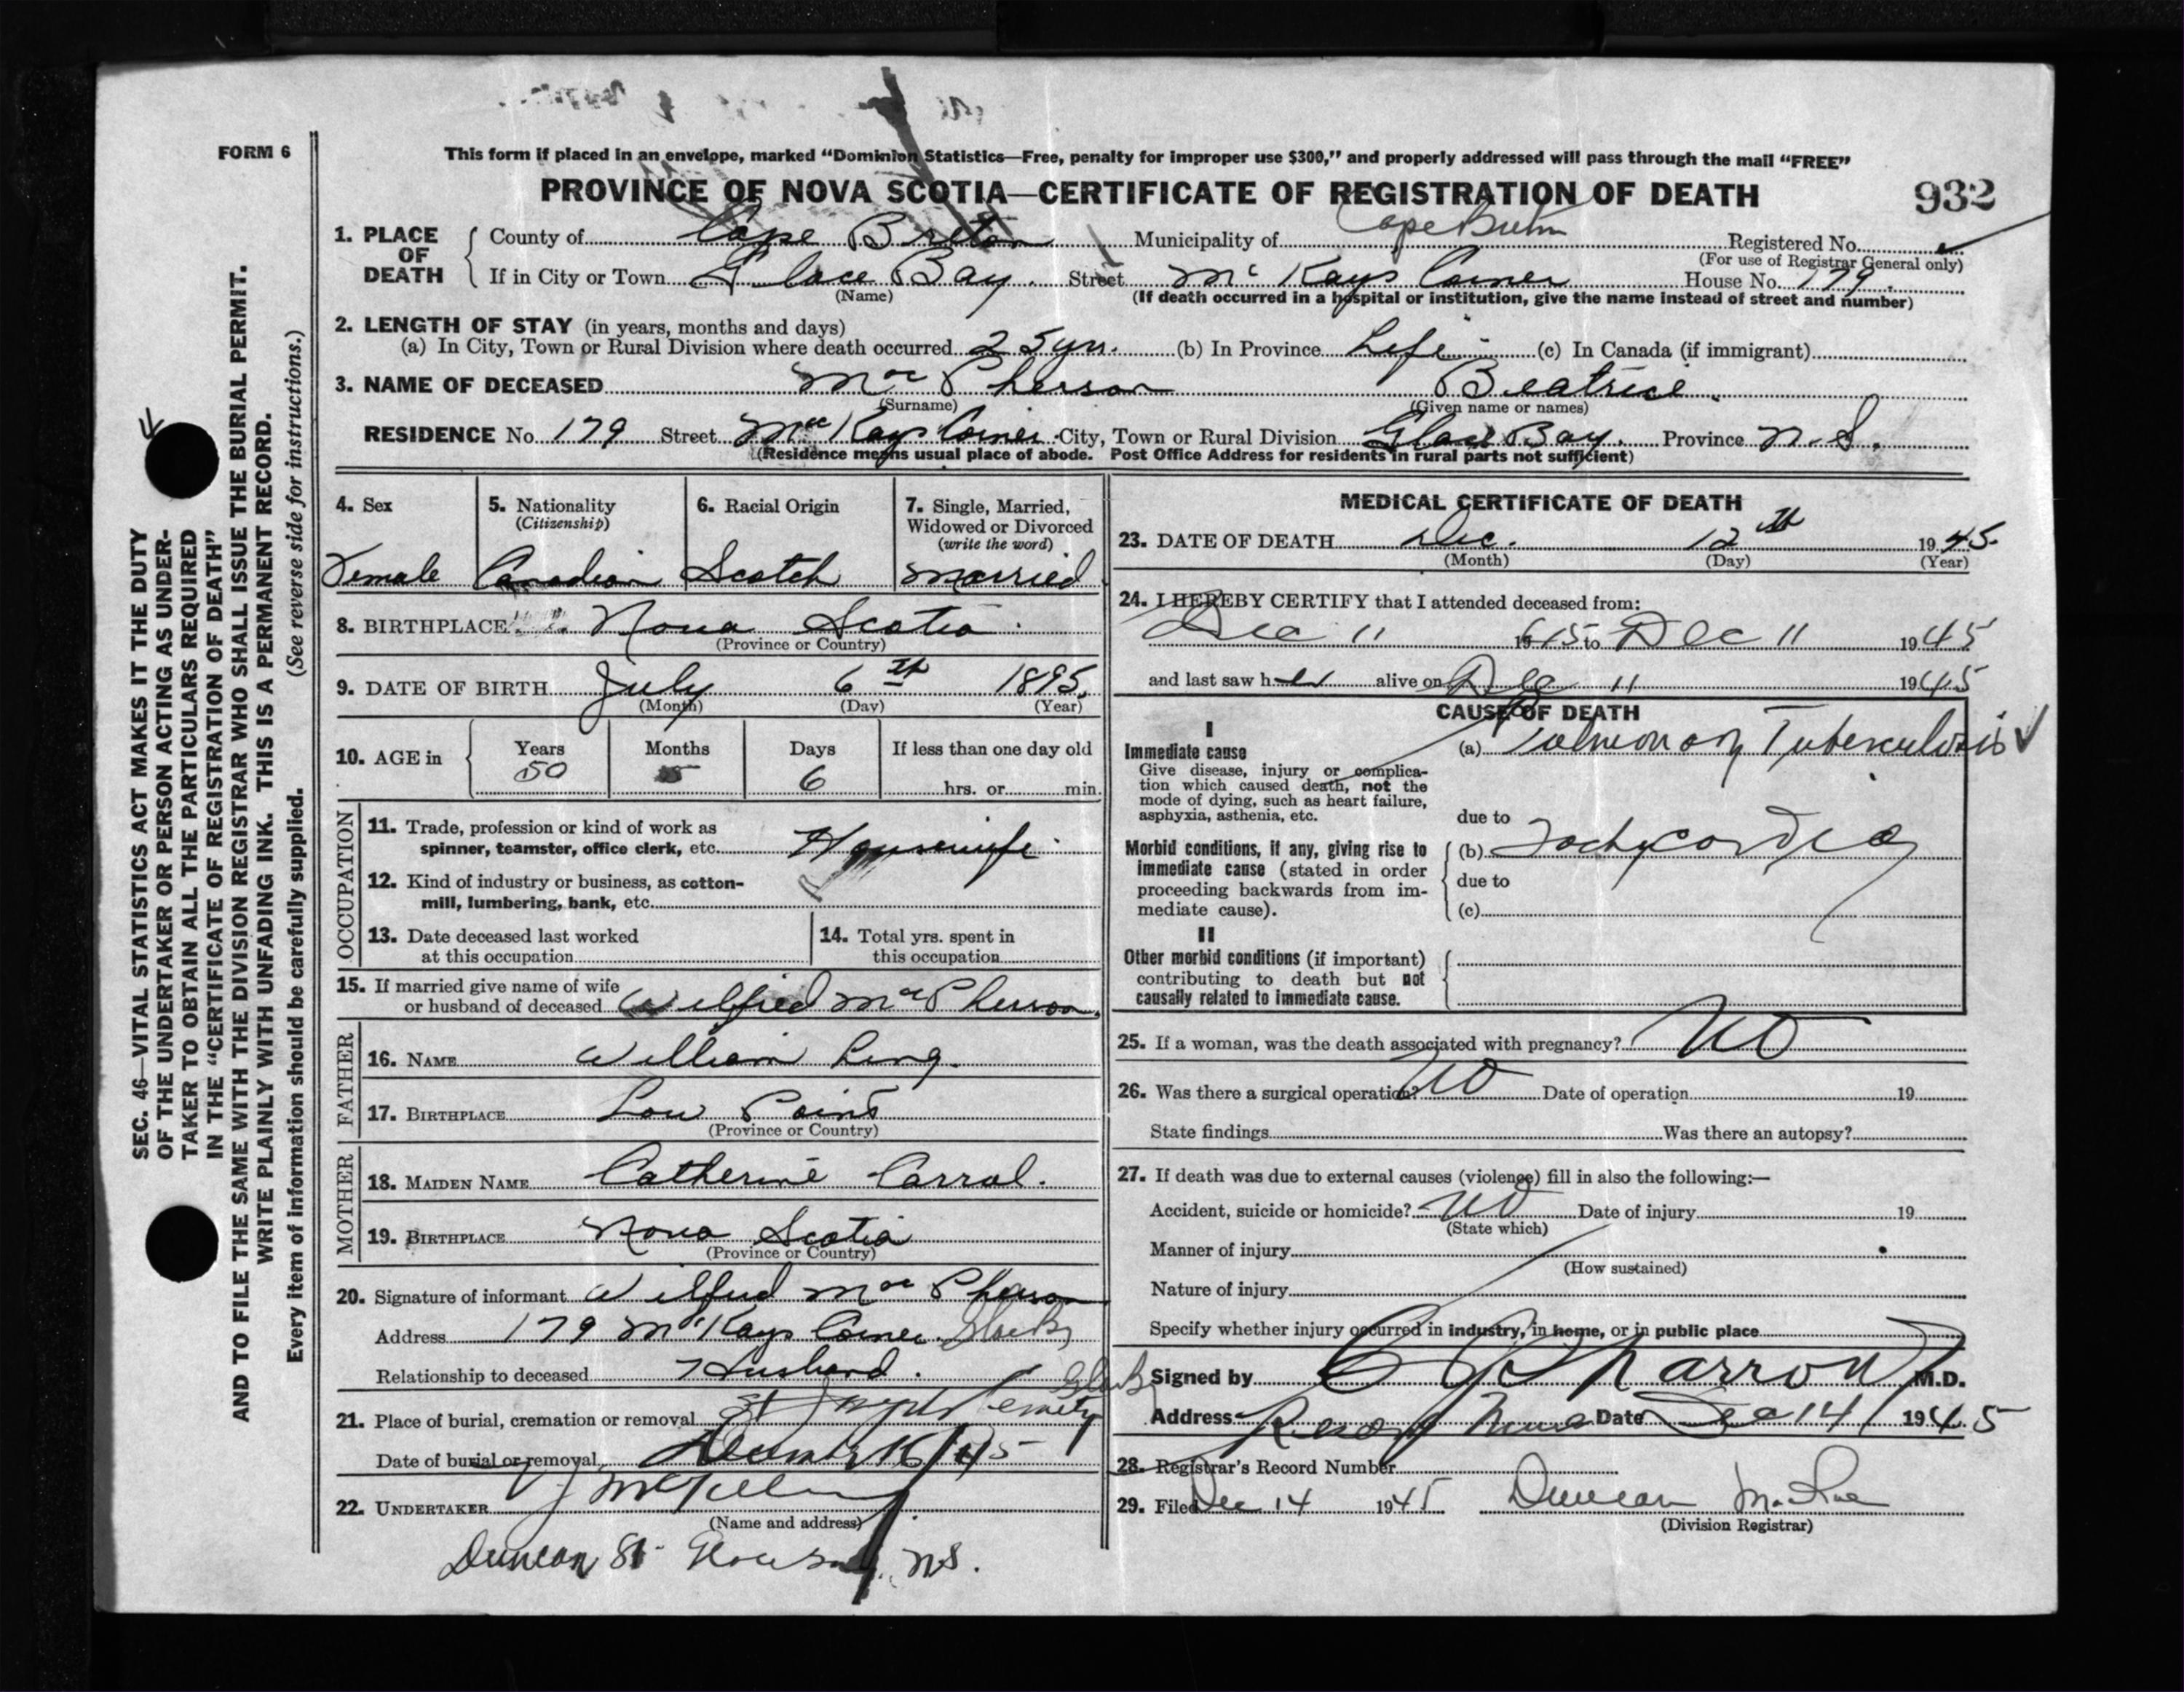 FORM 6
This form if placed in an envelope, marked “Dominion Statistics—Free, penalty for improper use $300,” and properly addressed will pass through the mail “FREE”
PROVINCE OF NOVA SCOTIA—CERTIFICATE OF REGISTRATION OF DEATH
932
1. PLACE OF DEATH
County of Cape Breton Municipality of Cape Breton Registered No.
(For use of Registrar General only)
If in City or Town Glace Bay. Street Mc Kays Corner House No. 179.
(Name) (If death occurred in a hospital or institution, give the name instead of street and number)
2. LENGTH OF STAY (in years, months and days)
(a) In City, Town or Rural Division where death occurred 25 yrs. (b) In Province Life (c) In Canada (if immigrant)
3. NAME OF DECEASED MacPherson Beatrice.
(Surname) (Given name or names)
RESIDENCE No. 179 Street MacKays Corner City, Town or Rural Division Glace Bay. Province N.S.
(Residence means usual place of abode. Post Office Address for residents in rural parts not sufficient)
4. Sex
Female
5. Nationality
(Citizenship)
Canadian
6. Racial Origin
Scotch
7. Single, Married,
Widowed or Divorced
(write the word)
Married
8. BIRTHPLACE Nova Scotia
(Province or Country)
9. DATE OF BIRTH July 6th 1895.
(Month) (Day) (Year)
10. AGE in Years Months Days If less than one day old
50 5 6 hrs. or min.
OCCUPATION
11. Trade, profession or kind of work as
spinner, teamster, office clerk, etc. Housewife
12. Kind of industry or business, as cotton-
mill, lumbering, bank, etc.
13. Date deceased last worked
at this occupation
14. Total yrs. spent in
this occupation
15. If married give name of wife
or husband of deceased Wilfred MacPherson.
FATHER
16. NAME William Ling.
17. BIRTHPLACE Low Point
(Province or Country)
MOTHER
18. MAIDEN NAME Catherine Carral.
19. BIRTHPLACE Nova Scotia
(Province or Country)
20. Signature of informant Wilfred MacPherson
Address 179 McKays Corner.
Relationship to deceased Husband.
21. Place of burial, cremation or removal St Joseph Cemetery
Date of burial or removal December 16/45
22. UNDERTAKER
(Name and address)
Duncan St Glace Bay, N.S.
MEDICAL CERTIFICATE OF DEATH
23. DATE OF DEATH Dec. 12th 1945.
(Month) (Day) (Year)
24. I HEREBY CERTIFY that I attended deceased from:
Dec 11 1945 to Dec 11 1945
and last saw her alive on Dec 11 1945
CAUSE OF DEATH
I
Immediate cause
Give disease, injury or complica-
tion which caused death, not the
mode of dying, such as heart failure,
asphyxia, asthenia, etc.
(a) Pulmonary Tuberculosis
due to
Morbid conditions, if any, giving rise to
immediate cause (stated in order
proceeding backwards from im-
mediate cause).
(b) Tachycardia
due to
(c)
II
Other morbid conditions (if important)
contributing to death but not
causally related to immediate cause.
25. If a woman, was the death associated with pregnancy? NO
26. Was there a surgical operation? NO Date of operation 19
State findings Was there an autopsy?
27. If death was due to external causes (violence) fill in also the following:—
Accident, suicide or homicide? NO Date of injury 19
(State which)
Manner of injury
(How sustained)
Nature of injury
Specify whether injury occurred in industry, in home, or in public place
Signed by M.D.
Address Reserve Mines Date Dec 14 1945
28. Registrar's Record Number
29. Filed Dec 14 1945 Duncan
(Division Registrar)
SEC. 46—VITAL STATISTICS ACT MAKES IT THE DUTY
OF THE UNDERTAKER OR PERSON ACTING AS UNDER-
TAKER TO OBTAIN ALL THE PARTICULARS REQUIRED
IN THE “CERTIFICATE OF REGISTRATION OF DEATH”
AND TO FILE THE SAME WITH THE DIVISION REGISTRAR WHO SHALL ISSUE THE BURIAL PERMIT.
WRITE PLAINLY WITH UNFADING INK. THIS IS A PERMANENT RECORD.
Every item of information should be carefully supplied. (See reverse side for instructions.)